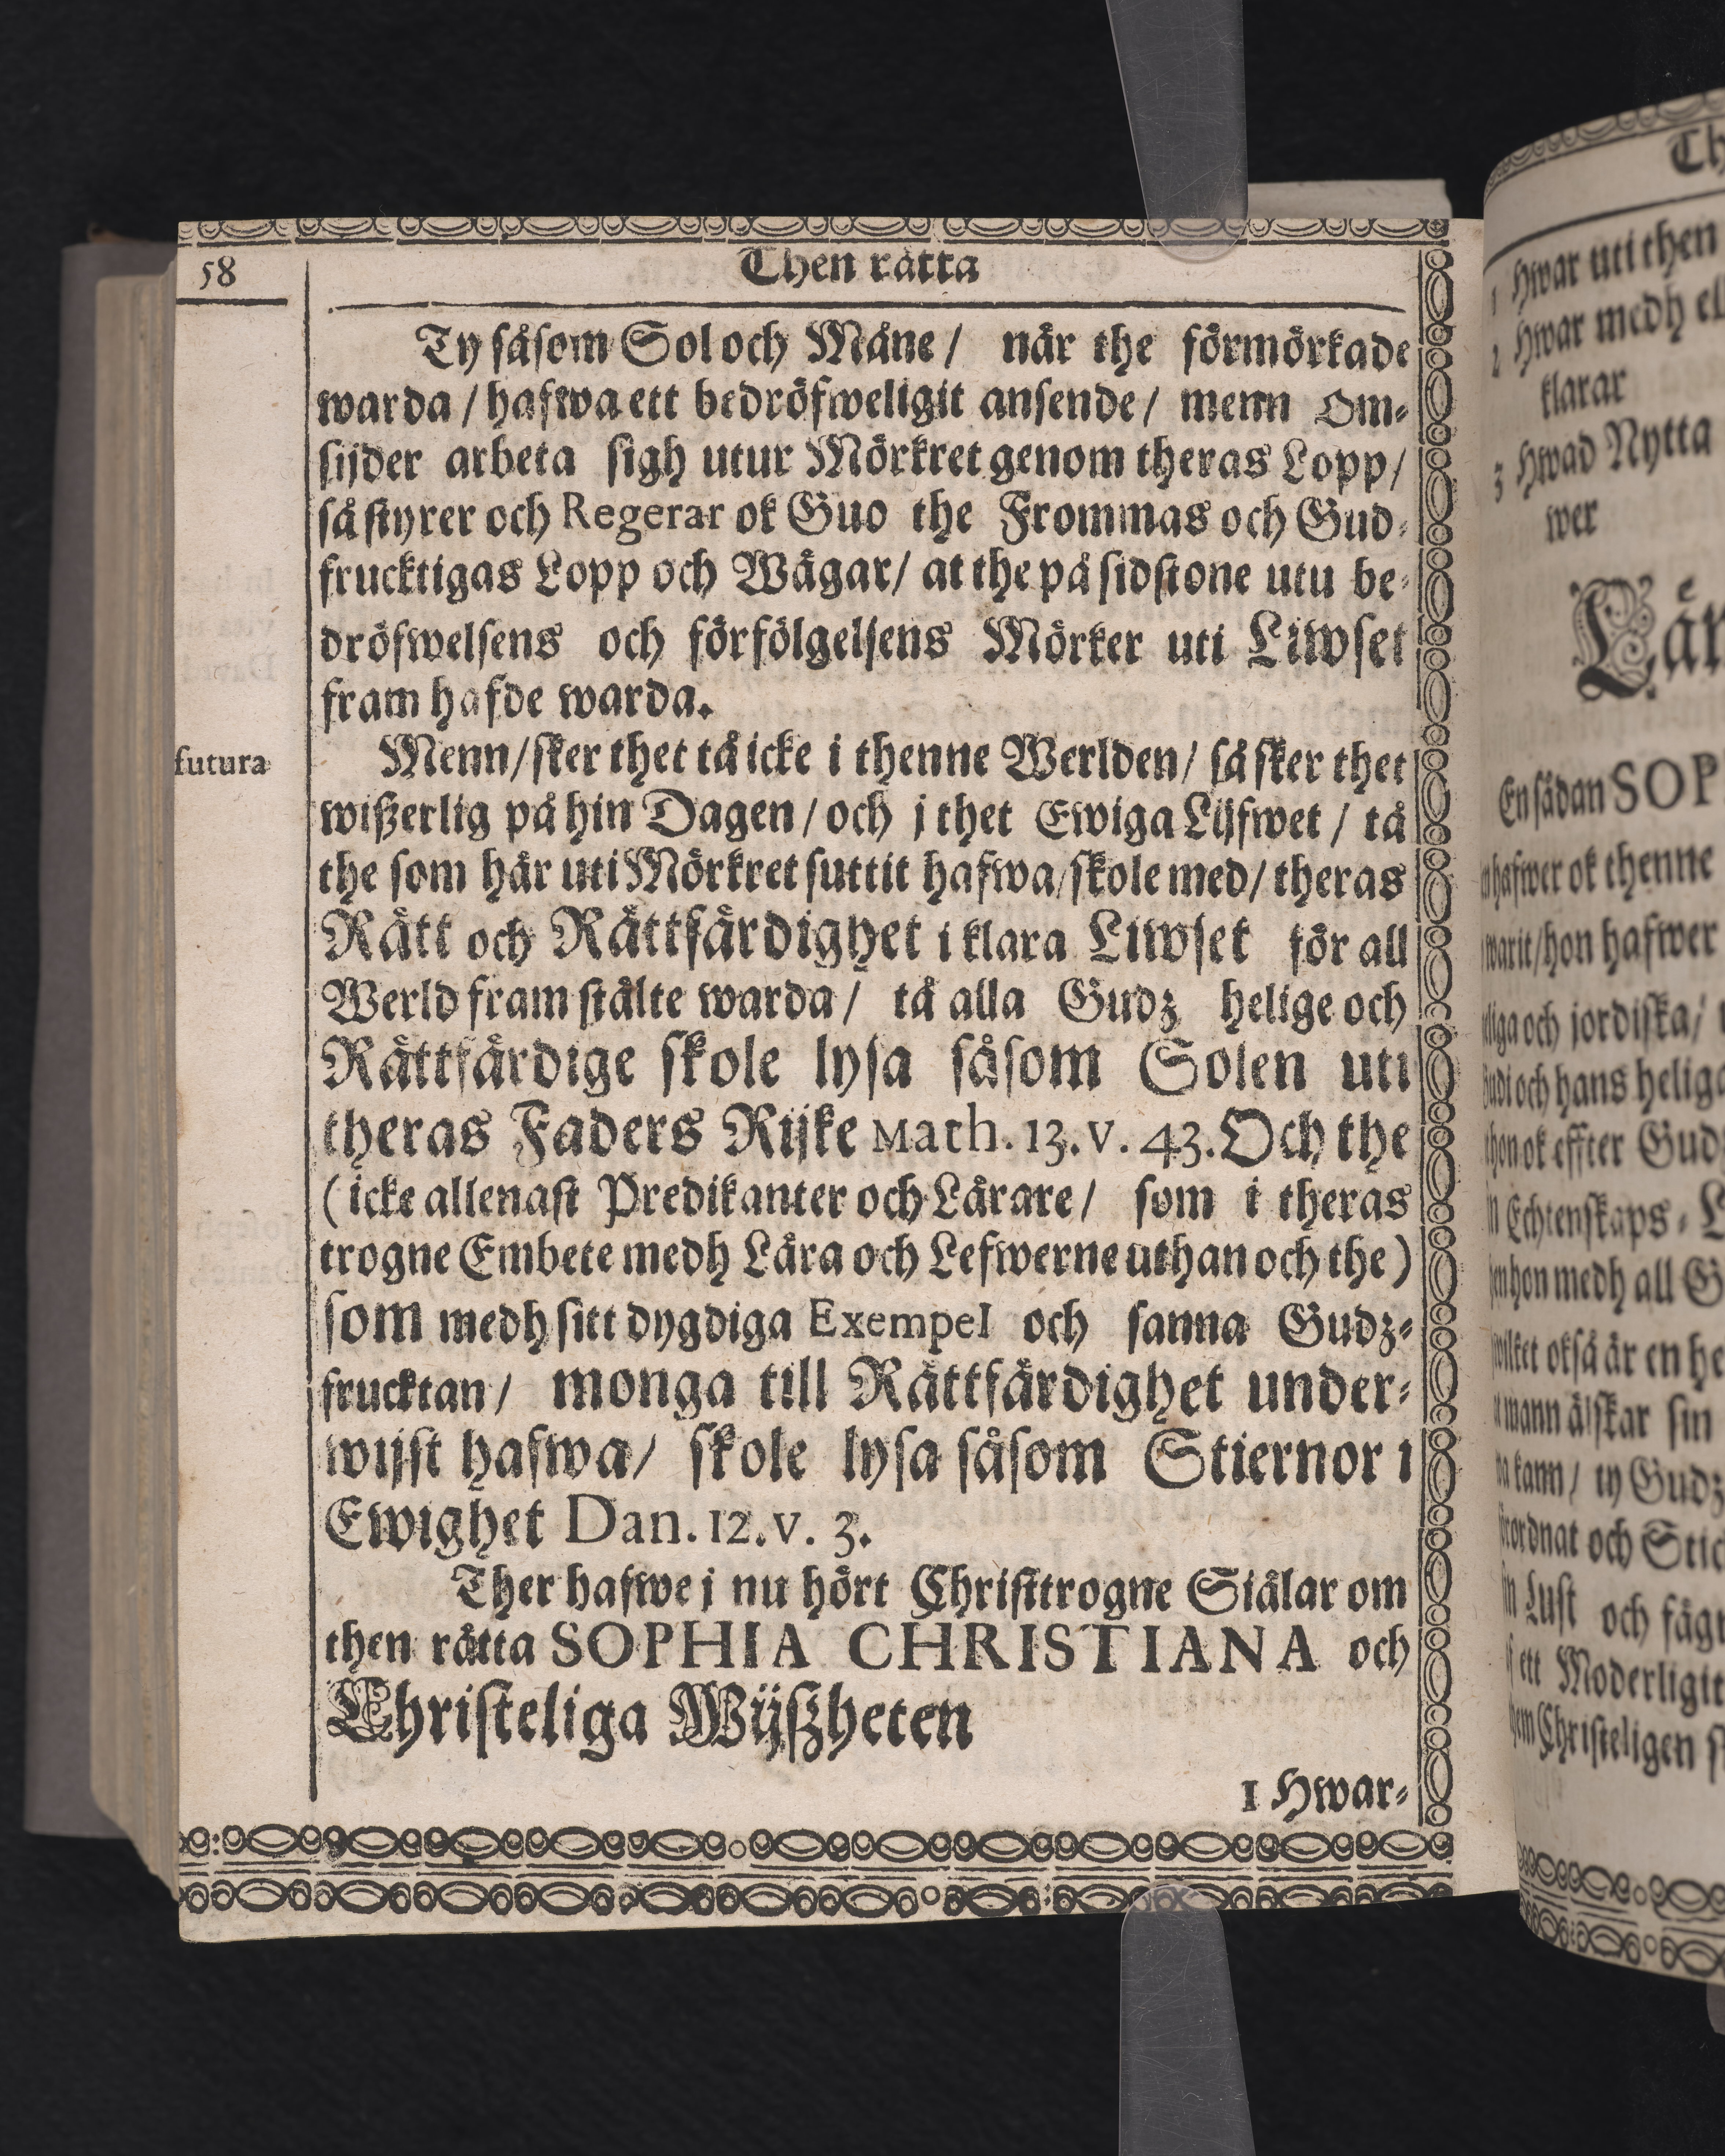 58
Then rätta
Ty såsom Sol och Måne / når the förmörkade
warda / hafwa ett bedröfweligit ansende / menn Om-
sijder arbeta sigh utur Mörkret genom theras Lopp /
så styrer och Regerar ok Guo the Frommas och Gud-
frucktigas Lopp och Wägar / at the på sidstone utu be-
dröfwelsens och förfölgelsens Mörker uti Liwset
fram hafde warda.
futura
Menn / sker thet tå icke i thenne Werlden / så sker thet
wißerlig på hin Dagen / och j thet Ewiga Lijfwet / tå
the som här uti Mörkret suttit hafwa / skole med / theras
Rätt och Rättfärdighet i klara Liwset för all
Werld fram stälte warda / tå alla Gudz helige och
Rättfärdige skole lysa såsom Solen uti
theras Faders Rijke Math. 13. v. 43. Och the
( icke allenast Predikanter och Lärare / som i theras
trogne Embete medh Lära och Lefwerne uthan och the )
som medh sitt dygdiga Exempel och sanna Gudz-
frucktan / monga till Rättfärdighet under-
wijst hafwa / skole lysa såsom Stiernor i
Ewighet Dan. 12. v. 3.
Ther hafwe j nu hört Christtrogne Siälar om
then rätta SOPHIA CHRISTIANA och
Christeliga Wijßheten
1 Hwar-
Th
1 Hwar uti then
2 Hwar medh
klarar
3 Hwad Nytta
wer
En sådan SOP
hafwer ok thenne
warit / hon hafwer
och jordiska /
och hans
ok effter Gud
Echtenskaps-
hon medh all G
okså är en he
wann älskar sin
kann / ty Gudz
och Stic
Lust och
ett Moderligit
Christeligen